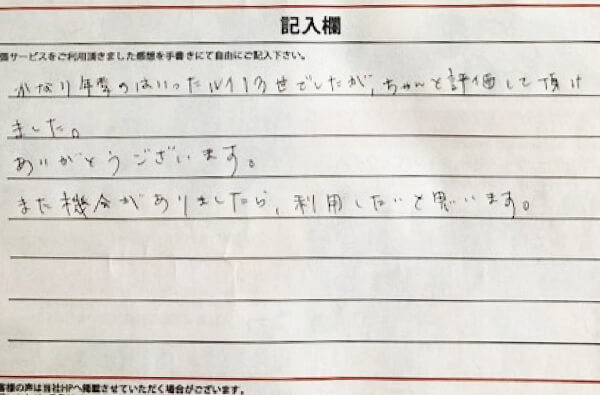 記入欄
張サービスをご利用頂きました感想を手書きにて自由にご記入下さい。
かなり年季のはいったルイ13世でしたが、ちゃんと評価して頂け
ました。
ありがとうございます。
また機会がありましたら、利用したいと思います。
客様の声は当社HPへ掲載させていただく場合がございます。